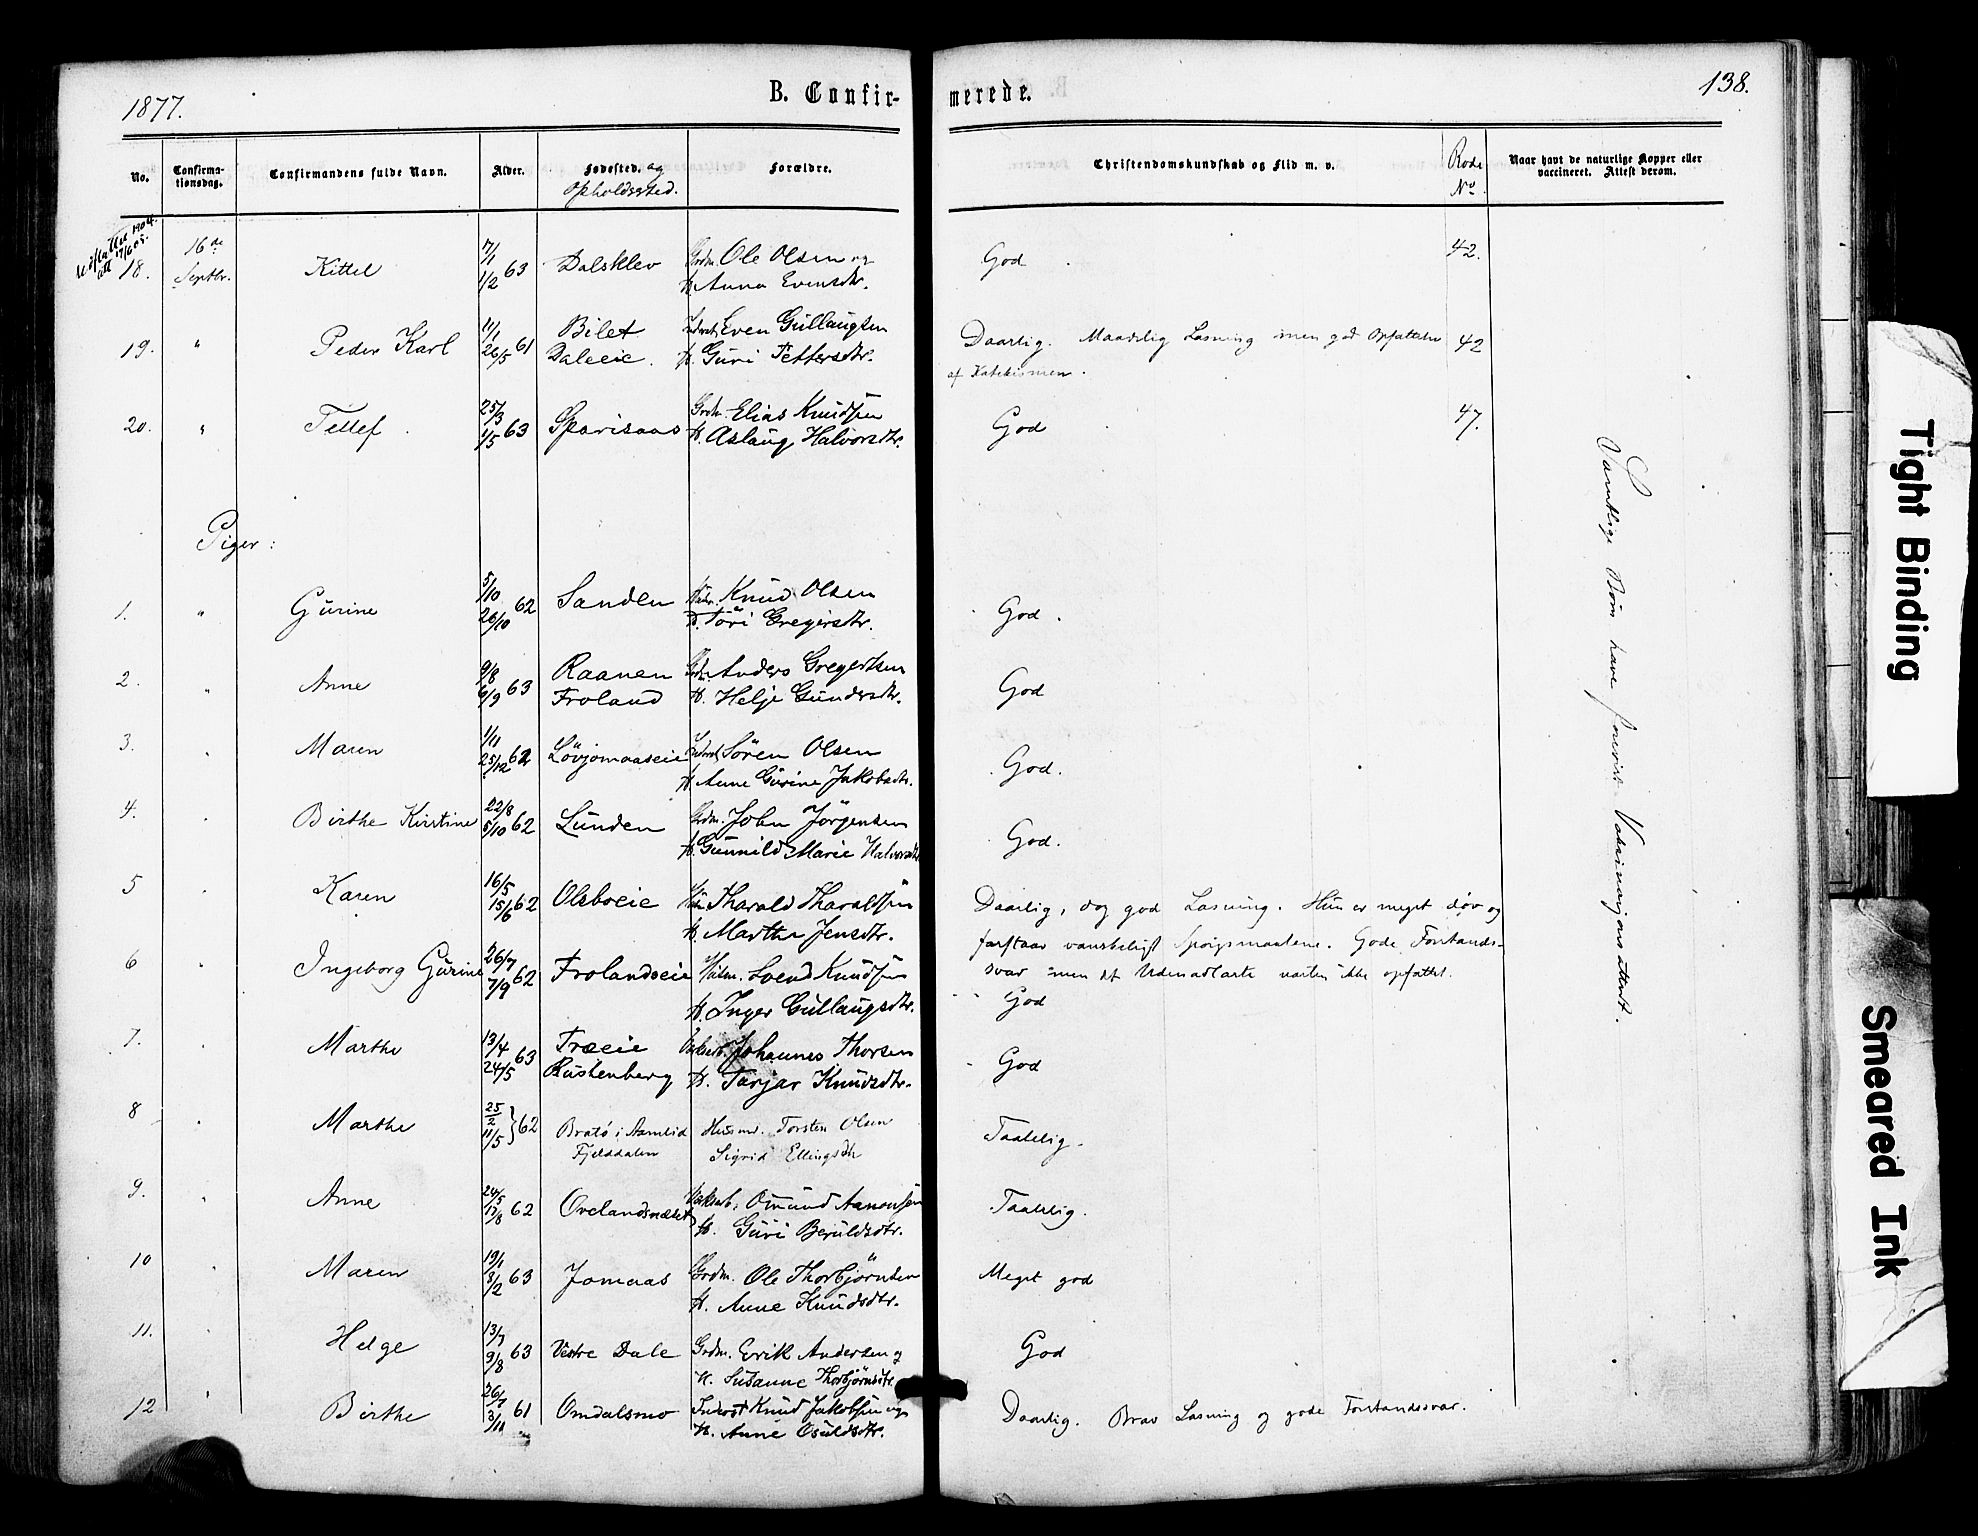 1877.
B. Confir-
merede.
138.
No.
Confirma-
tionsdag.
Confirmandens fulde Navn.
Alder.
Fødested. og
Opholdssted.
Forældre.
Christendomskundskab og Flid m. v.
Rode
No.
Naar havt de naturlige Kopper eller
vaccineret. Attest derom.
1904.
att 17/6 05.
18. 16de Septbr. Kittel 7/1 1/2 63 Dalsklev Grdm. Ole Olsen og
H. Anna Evensdtr.
God 42.
19. " Peder Karl 11/1 26/5 61 Bilet
Daleeie. Inderst Even Gullaugsen
H. Guri Tettersdtr.
Daarlig. Maadelig Læsning men god Opfattelse 42
af Katekismen.
20. " Tellef 25/3 1/5 63 Sparisaas Grdm. Elias Knudsen
H. Aslaug Halvorsdtr.
God 47.
Piger:
1. " Gurine 5/10 26/10 62 Sanden Knud Olsen
Töri Gregersdtr.
God.
2. " Anne 9/8 6/9 63 Raanen
Froland Grdm. Anders Gregertsen
H. Helje Gundersdtr.
God
3. " Maren 1/11 25/12 62 Lövjomaaseie Inderst Sören Olsen
H. Anne Gurine Jakobsdtr.
God.
4. " Birthe Kirstine 22/8 5/10 62 Lunden Grdm. John Jörgensen
H. Gunnild Marie Halvorsdtr.
God.
5 " Karen 16/5 15/6 62 Olsboeie Tharald Tharaldsen
H. Marthe Jensdtr.
Daarlig, dog god Læsning. Hun er meget døv og
forstaar vanskeligt Spørgsmaalene. Gode Forstands-
svar men et Udenadlærte næsten ikke opfattet.
6 " Ingeborg Gurine 26/7 7/9 62 Frolandseie Husm. Svend Knudsen
H. Inger Gullaugsdtr.
God
7. " Marthe 13/4 24/5 63 Træeie
Rustenberg Johannes Thorsen
H. Tarjar Knudsdtr.
God
8 " Marthe 25/2 11/5 } 62 Bratø i Aamlid
Fjelddalen Husmd. Torsten Olsen
Sigrid Ellingsdtr
Taalelig.
9. " Anne 24/5 17/8 62 Ovelandsnæset Omund Aanonsen
H. Guri Beruldsdtr.
Taalelig.
10 " Maren 19/1 8/2 63 Jomaas Grdm. Ole Thorbjörnsen
H. Anne Knudsdtr.
Meget god
11. " Helge 13/7 9/8 63 Vestre Dale Grdm. Erik Andersen og
H. Susanne Thorbjörnsdtr
God
12 " Birthe 26/7 3/11 61 Omdalsmo Inderst Knud Jakobsen og
H. Anne Osuldsdtr.
Daarlig. Brav Læsning og gode Forstandssvar.
Samtlige Børn have forevist Vaksinasjonsattest.
Tight Binding
Smeared Ink